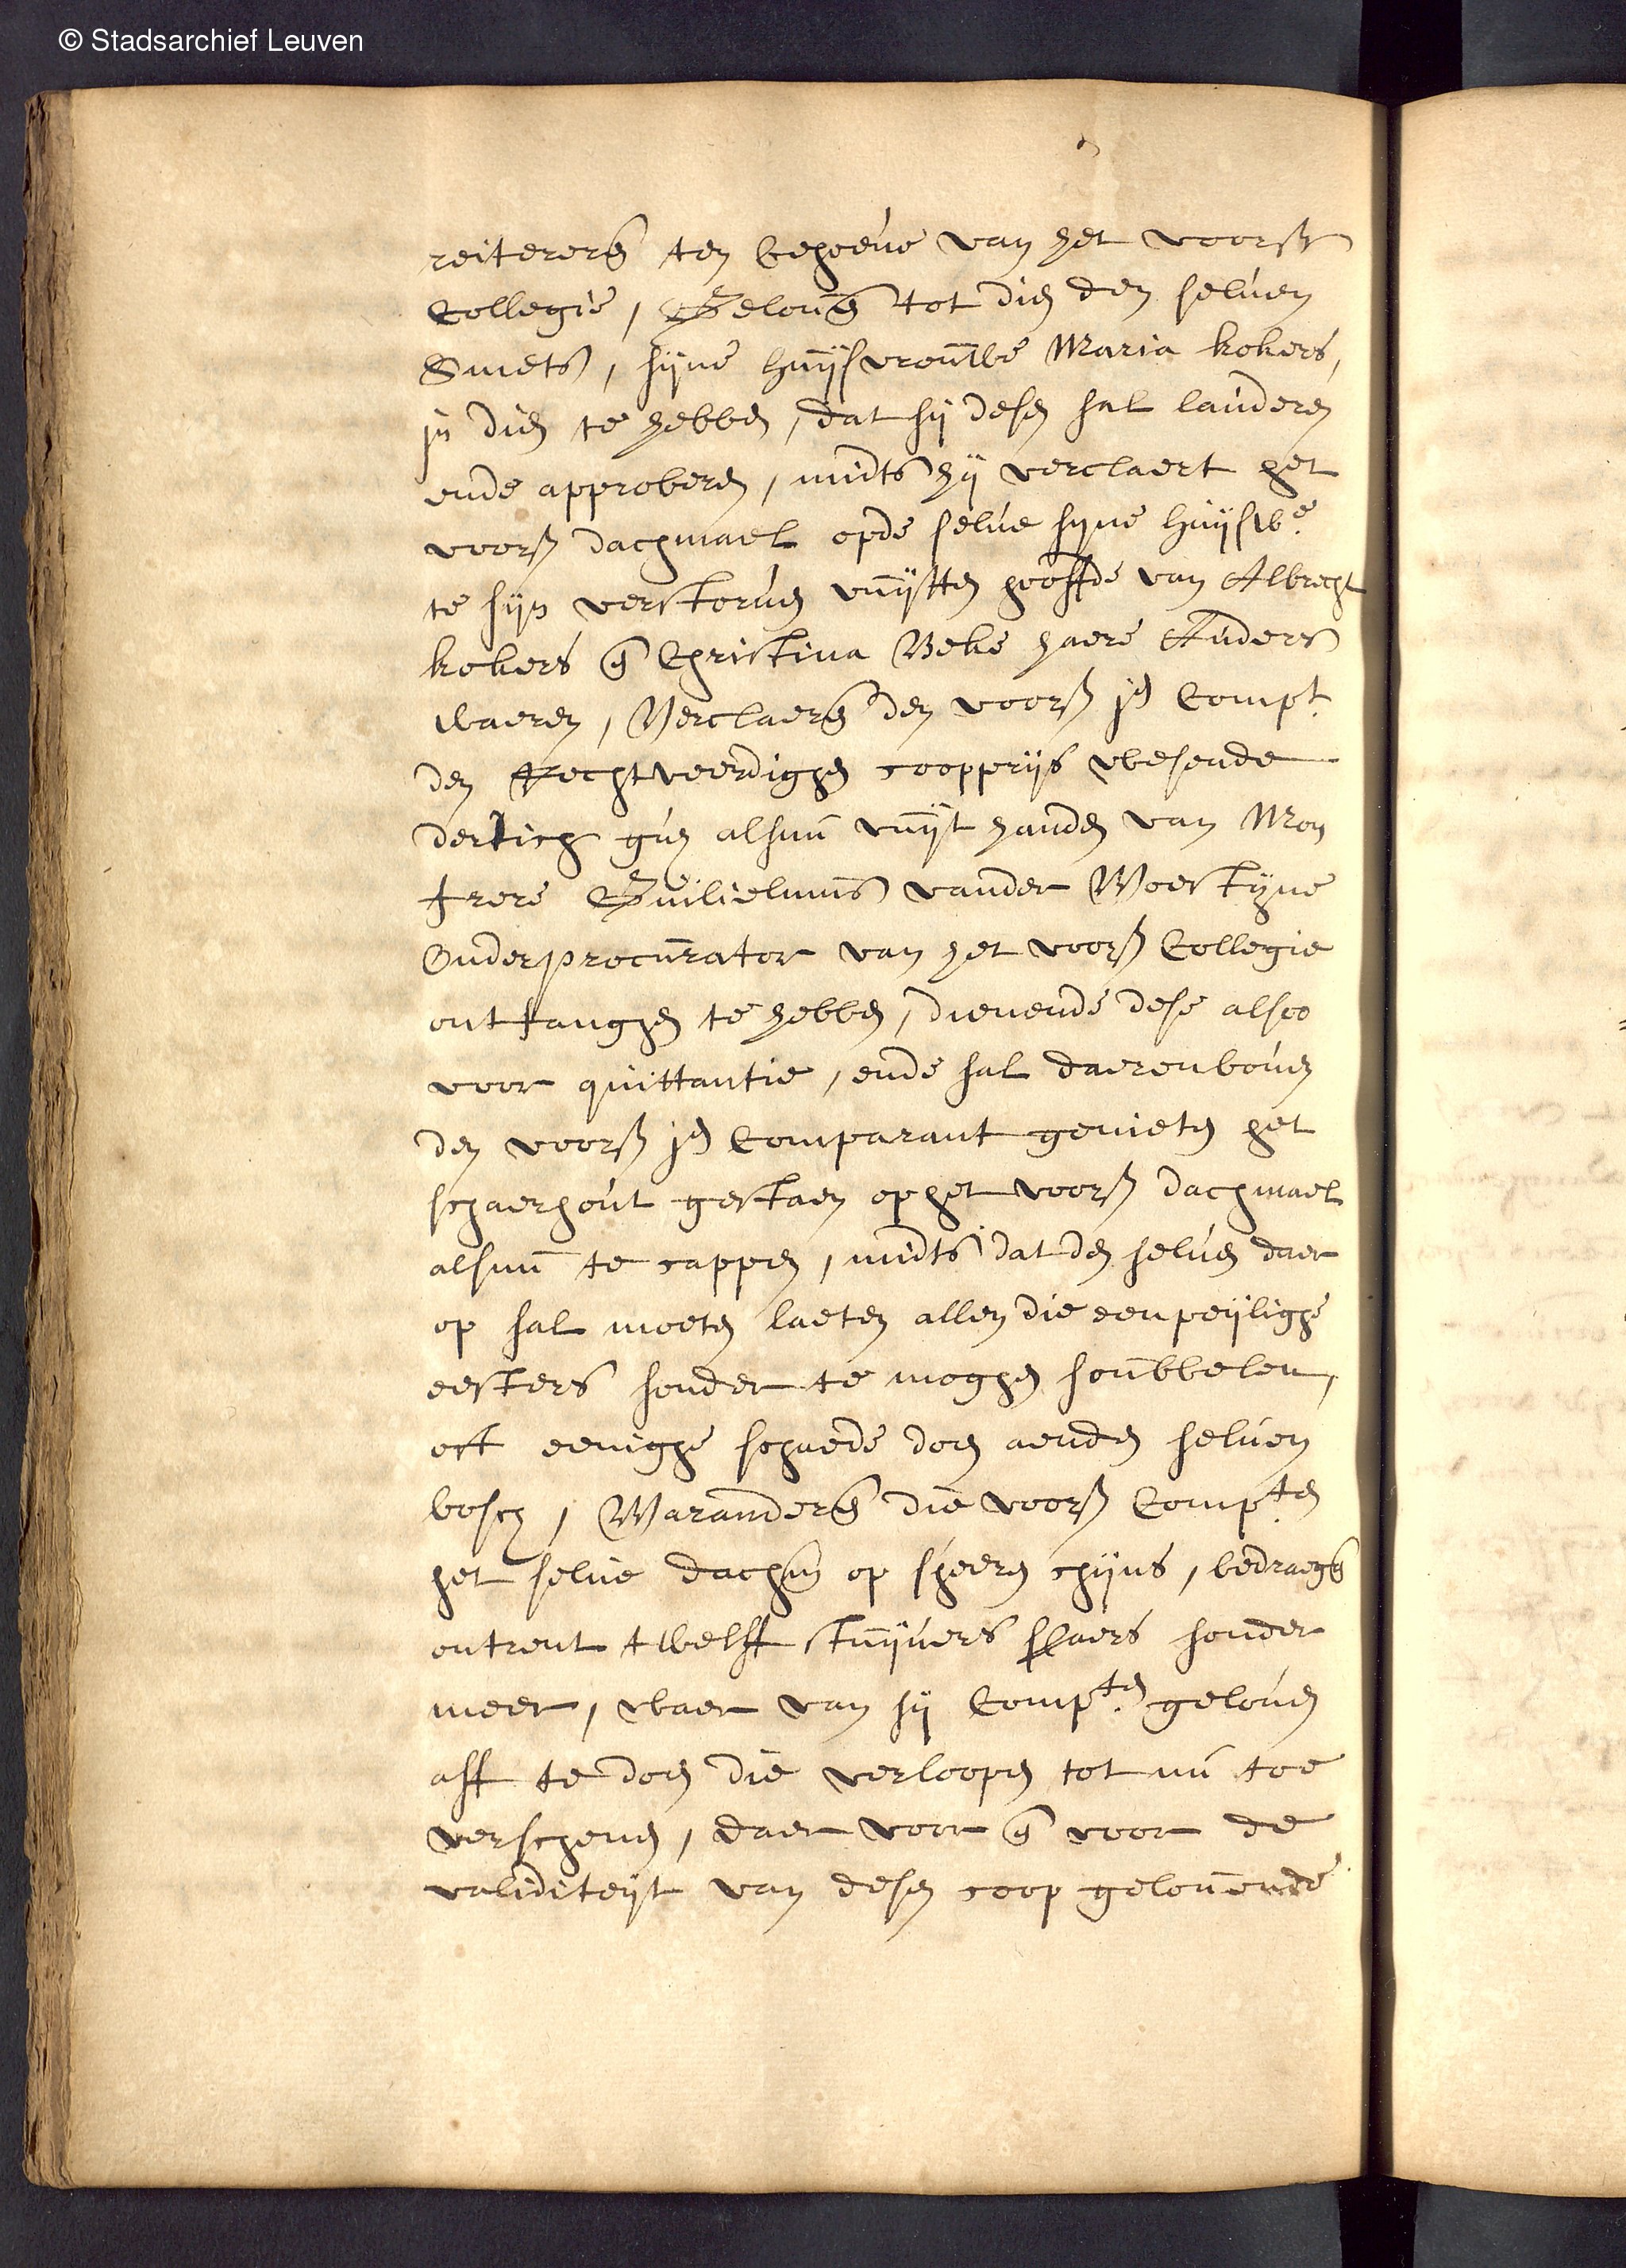 © Stadsarchief Leuven
reitereren ten behoeve van het voors
Collegie, Gelouen tot dien den seluen
Smets, sijne huijsvrouwe Maria kokers,
in dien te hebben, dat sij desen sal lauderen
ende approberen, midts hij verclaert het
voors dachmael opde selue syne huijsvre
te sijn verstoruen vuijtten hooffde van Albrecht
kokers en Christina Beke haere Auders
waeren, Verclaeren den voors in Compt
den Rechtveerdighen coopprijs wesende
dertich guls alsnu vuijt handen van Mon
frere Guilielmus vander Woestyne
Onderprocurator van het voors Collegie
ontfanghen te hebben, dienende dese alsoo
voor quittantie, ende sal daerenbouen
den voors in Comparant genieten het
schaerhout gestaen op het voors dachmael
alsnu te cappen, midts dat den seluen daer
op sal moeten laeten allen die eenpeijlighe
eesters sonder te moghen
oft eenighe schaede doen aenden seluen
bosch, Waranderen die voors Compten
het selue dachm op sheeren chijns, bedraegen
ontrent twelff stuijvers sjaers sonder
meer, waer van sij Compten gelouen
aff te doen die verloopen tot nu toe
verschenen, daer voor en voor de
validiteijt van desen coop gelouende